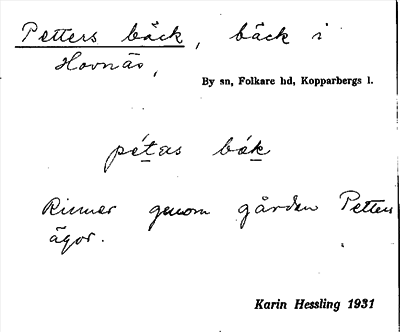 Petters bäck, bäck i
Hovnäs,
By sn, Folkare hd, Kopparbergs l.
pétas bäk
Rinner genom gården Petters
ägor.
Karin Hessling 1931